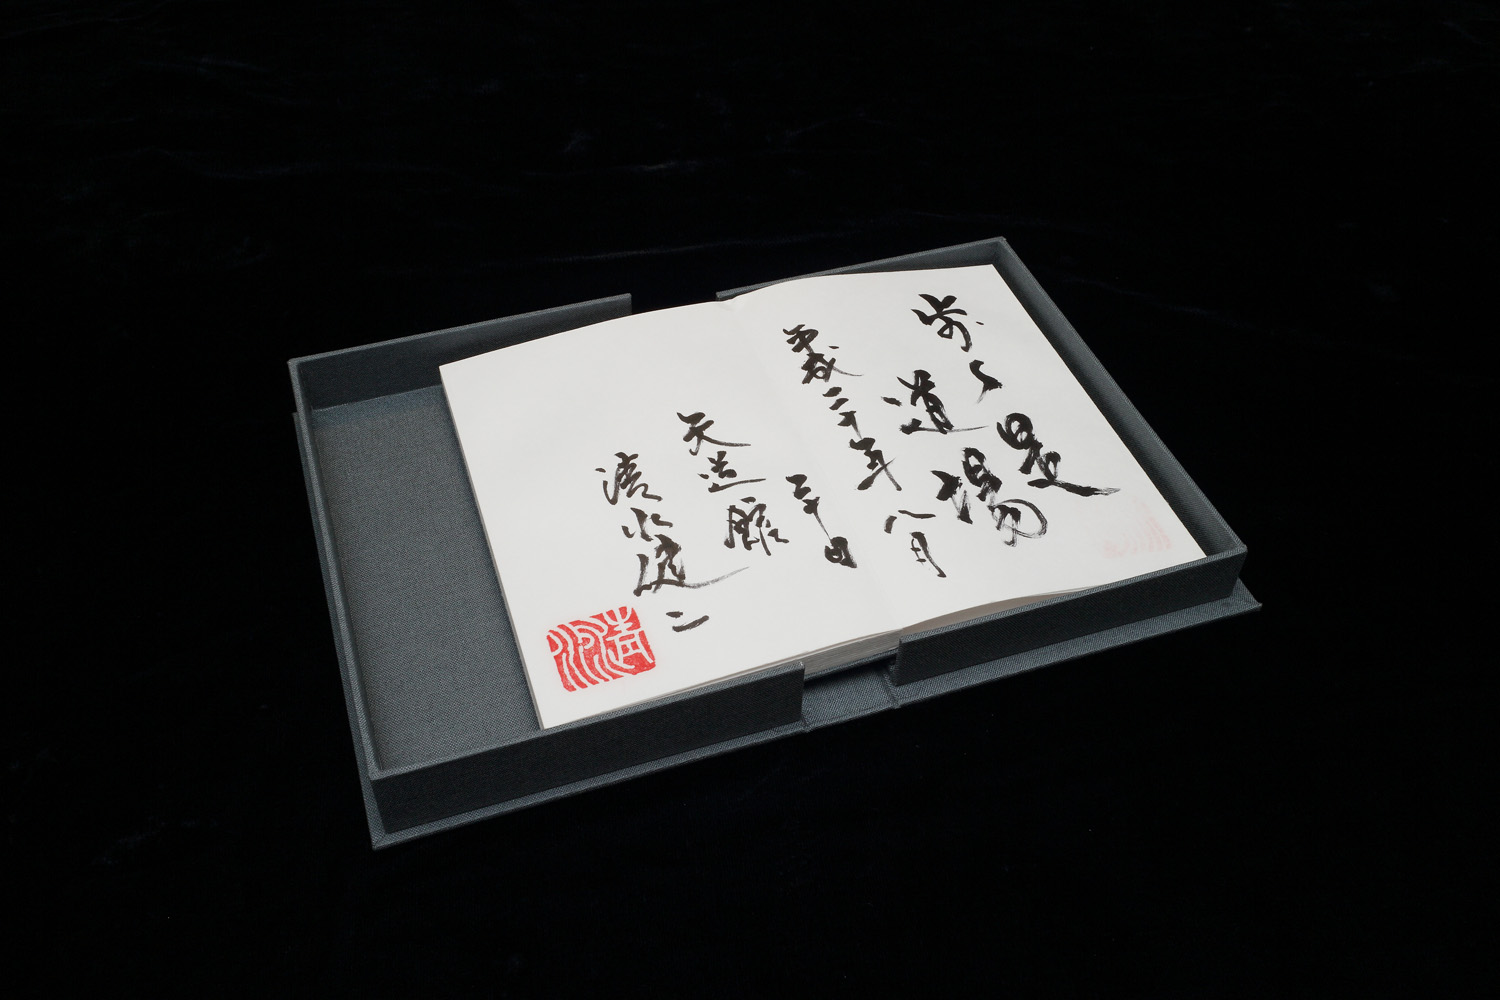 歩々是
道場
平成二十年八月
三十日
天道館
清水健二
清水